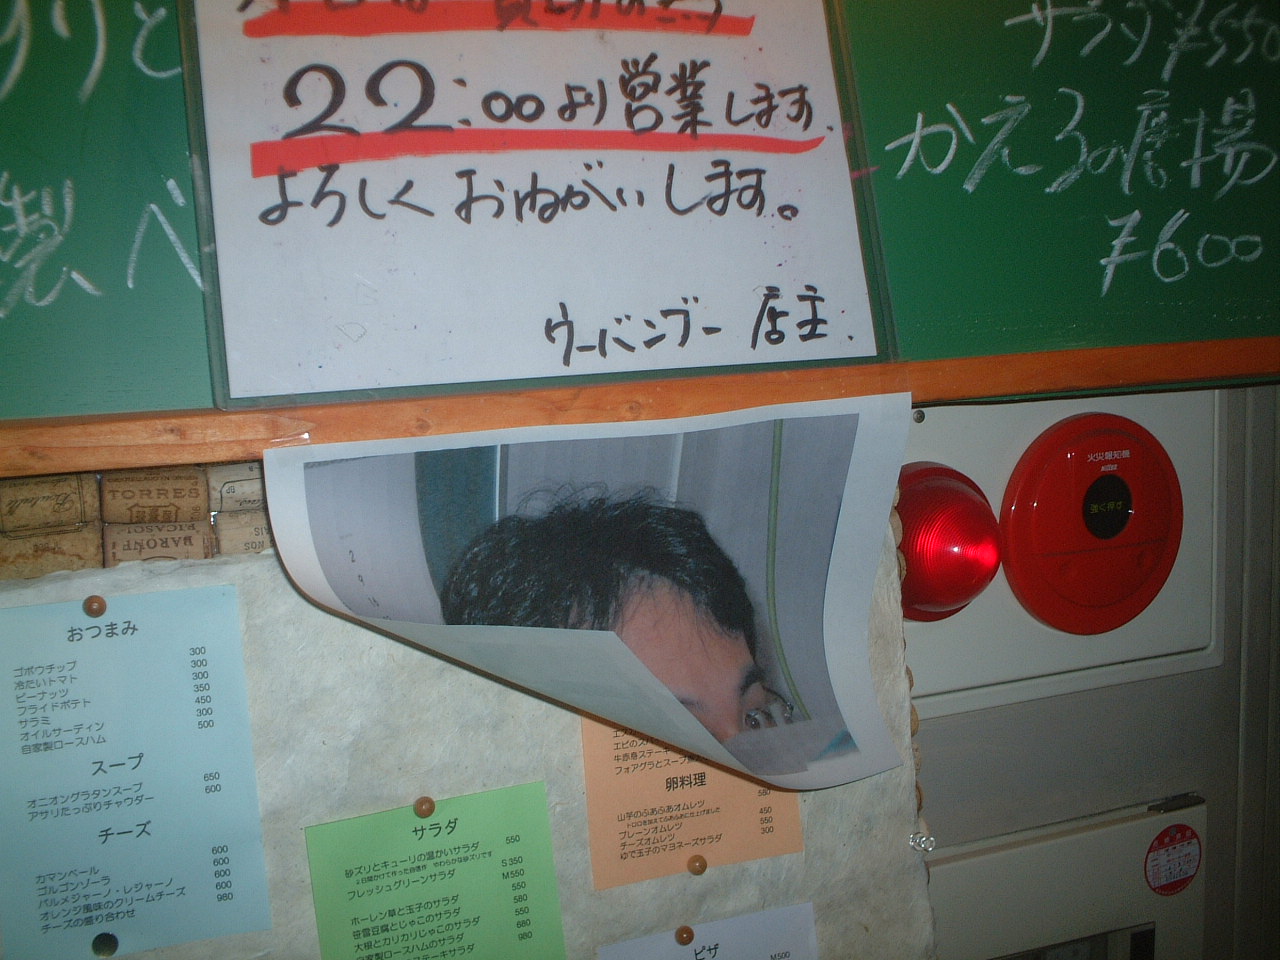 22:00より営業します.
よろしくおねがいします。
ウーバンブー 店主.
サラダ ¥550
かえるの広場
¥600
りと
製 ベ
TORRES
PICASSO
BARONE
火災報知機
強く押す
2
9
16
おつまみ
ゴボウチップ 300
冷たいトマト 300
ピーナッツ 350
フライドポテト 450
サラミ 300
オイルサーディン 500
自家製ロースハム
スープ
オニオングラタンスープ 650
アサリたっぷりチャウダー 600
チーズ
カマンベール 600
ゴルゴンゾーラ 600
パルメジャーノ・レジャーノ 600
オレンジ風味のクリームチーズ 600
チーズの盛り合わせ 980
サラダ
砂ズリとキューリの温かいサラダ 550
2日間かけて作った自信作 やわらかな砂ズリです
フレッシュグリーンサラダ S 350
M550
ホーレン草と玉子のサラダ 550
笹雪豆腐とじゃこのサラダ 580
大根とカリカリじゃこのサラダ 550
自家製ロースハムのサラダ 680
ステーキサラダ 980
エビのス
牛赤身ステーキ
フォアグラとスープ
卵料理
山芋のふあふあオムレツ 580
トロロを加えてふあふあに仕上げました
プレーンオムレツ 450
チーズオムレツ 550
ゆで玉子のマヨネーズサラダ 300
ピザ
M500